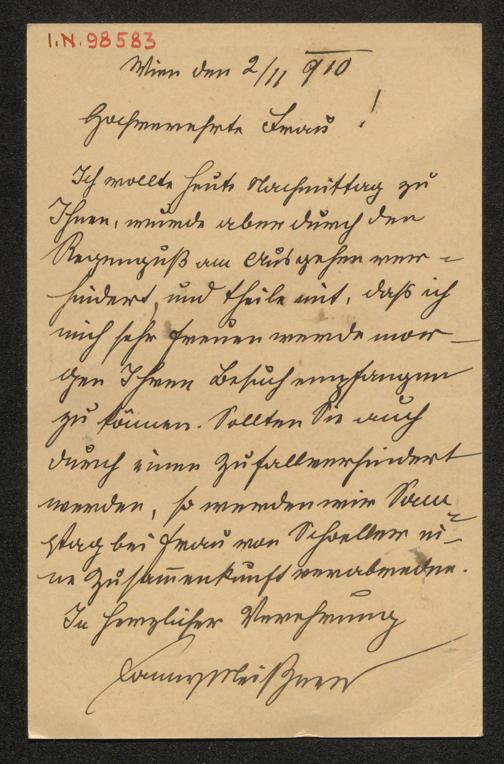 I.N. 98583
Wien den 2/11 910
Hochverehrte Frau !
Ich wollte heute Nachmittag zu
Ihnen, wurde aber durch den
Regenguß am Ausgehen ver-
hindert, und theile mit, daß ich
mich sehr freuen werde mor-
gen Ihren Besuch empfangen
zu können. Sollten Sie auch
durch einen Zufall verhindert
werden, so werden wir Sam-
stag bei Frau von Schoeller ei-
ne Zusam̅enkunft verabreden.
In herzlicher Verehrung
Fanny Meißner